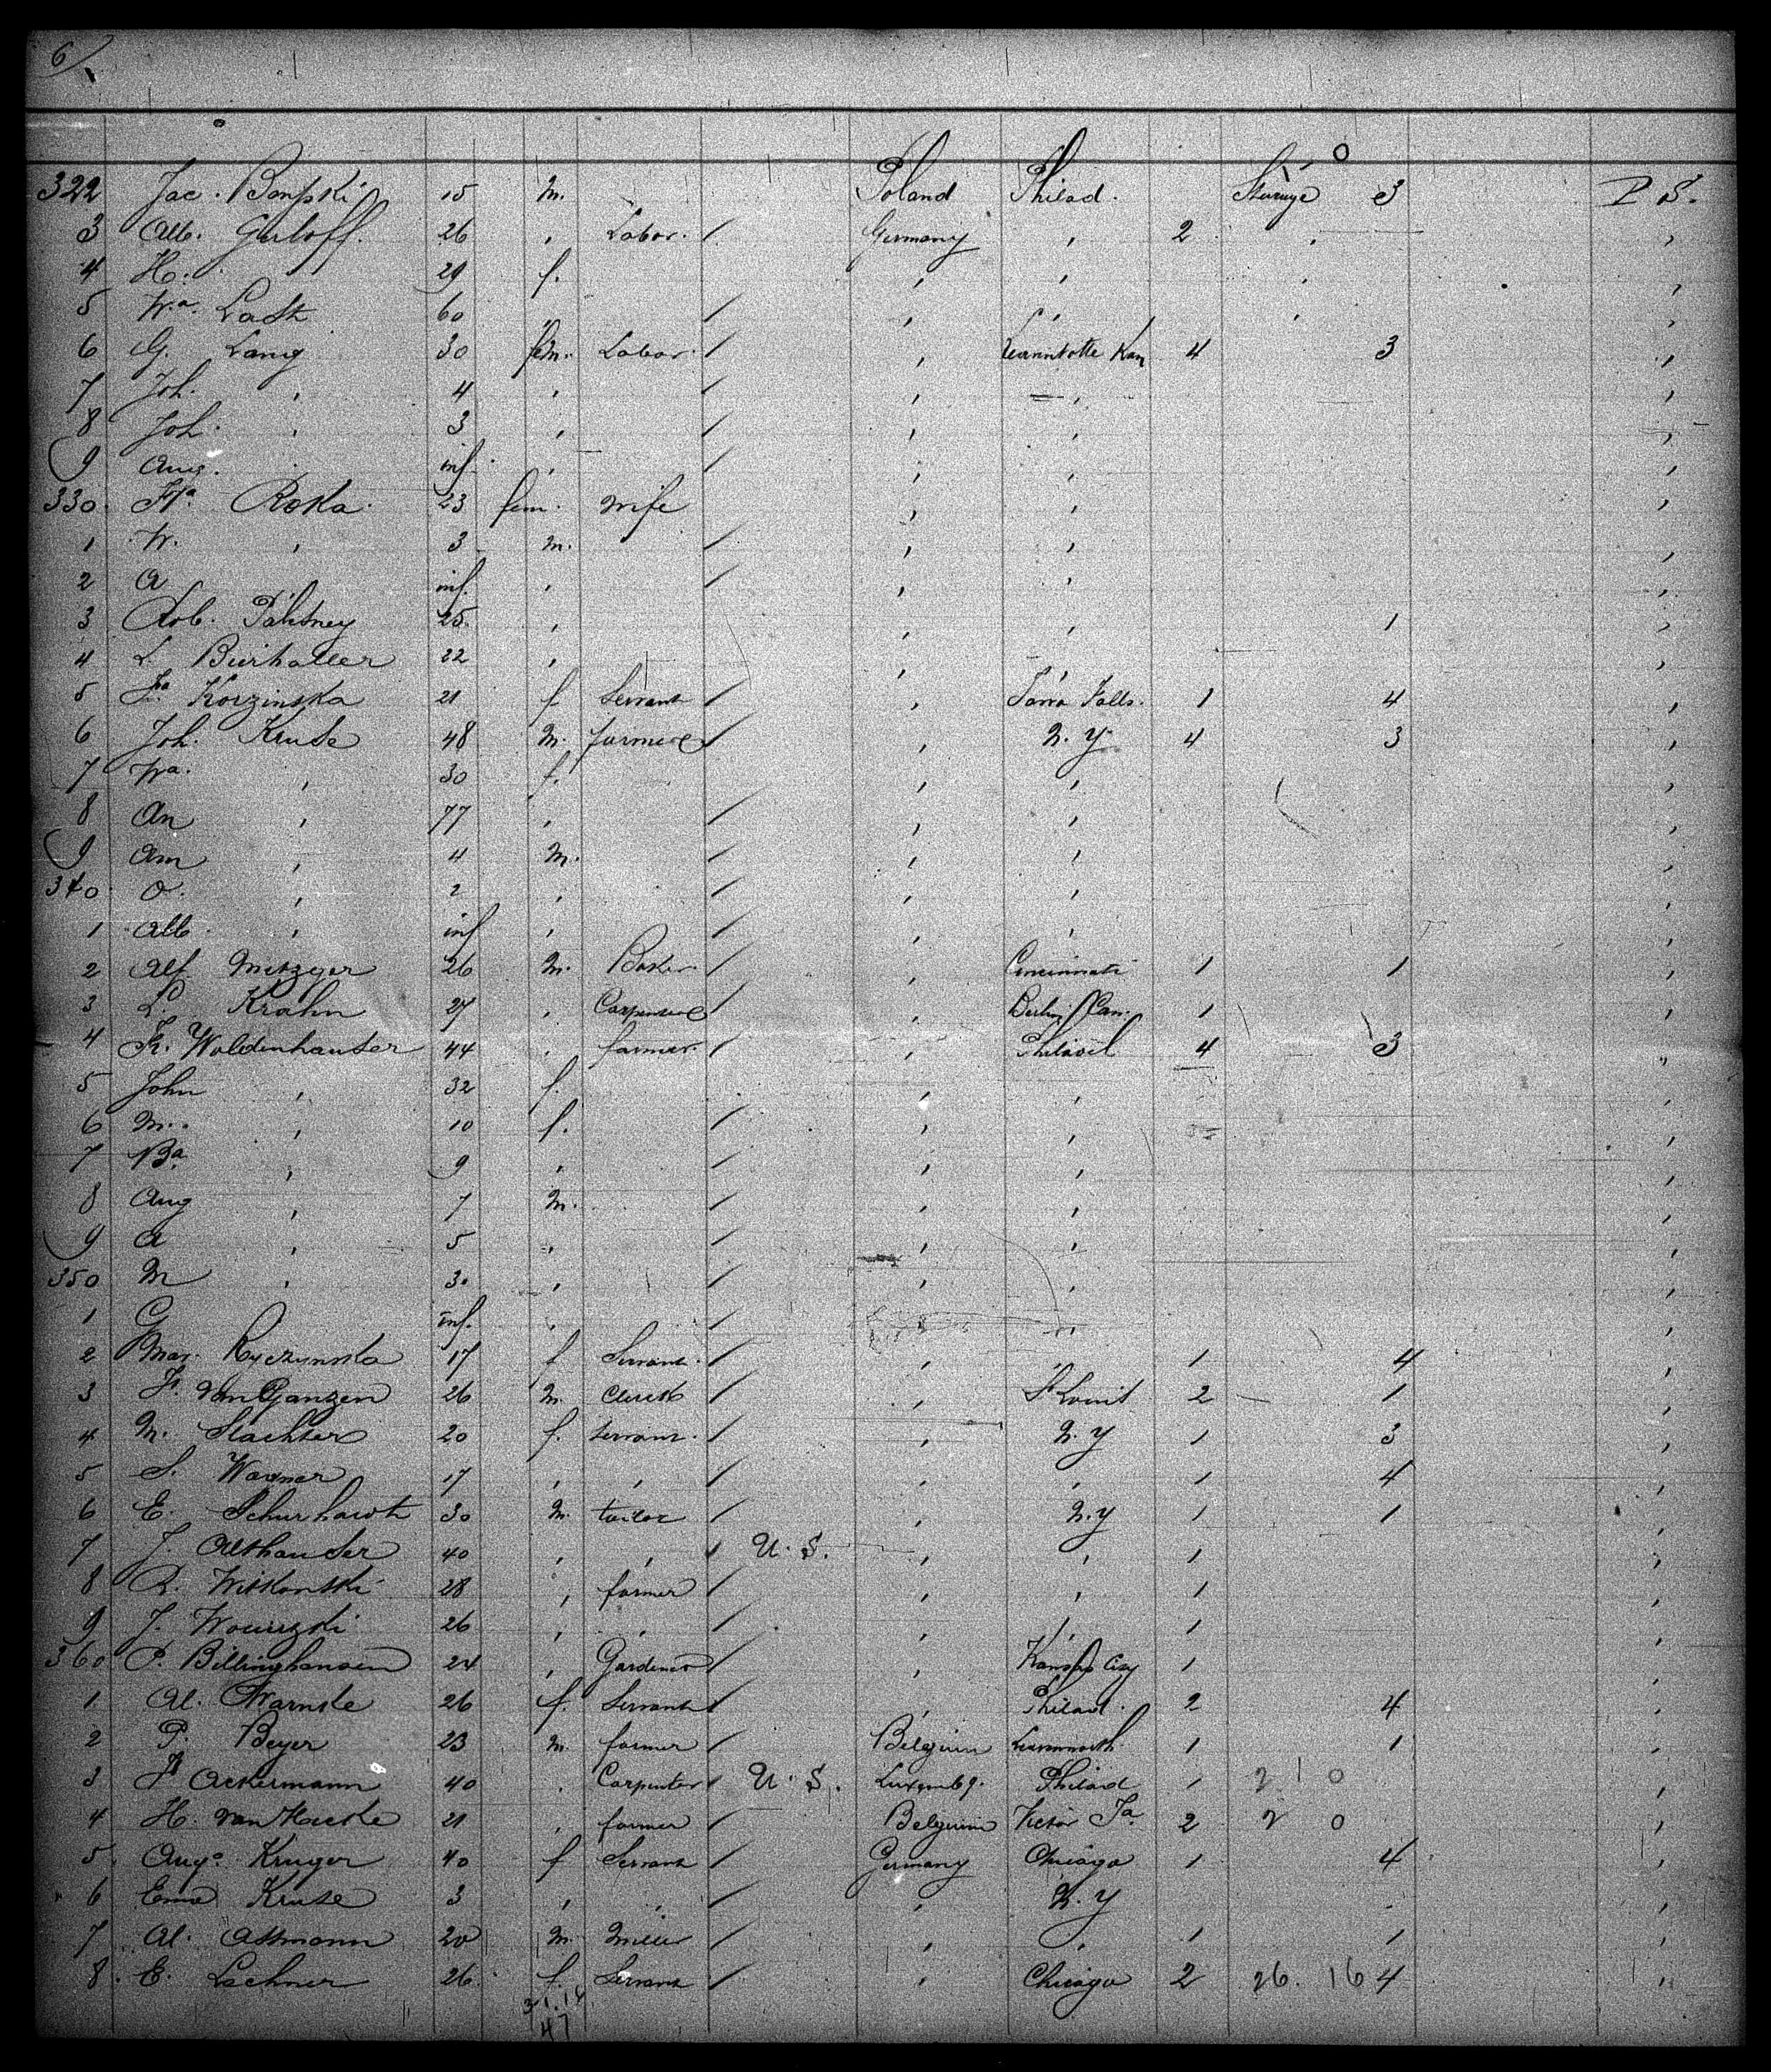 6
322 Jac. Bonpski 15 m. Poland Philad. Sterage 3 P. S.
3 Alb. Gerloff. 26 , Labor. / Germany , 2 , ,
4 H. . 29 f. , , , ,
5 Wa. 60 , / , , , ,
6 G. Lang 30 fem. Labor. / , Kan 4 3 ,
7 Joh. , 4 , / , , ,
8 Joh. , 3 , / , , ,
9 Aug. . inf. , / , , ,
330. Fra Roska. 23 fem. wife , , ,
1 W. , 3 m. / , , ,
2 A , inf. , / , , ,
3 Rob. 25. , , , 1 ,
4 L. Bierhaller 22 , , , ,
5 Korzinska 21 f Servant / , Falls. 1 4 ,
6 Joh. Kruse 48 m. farmer / , N. Y. 4 3 ,
7 Wa. , 30 f. , , ,
8 An , 77 , / , , ,
9 Am , 4 m. / , , ,
340 O. , 2 , / , , ,
1 Alb. , inf , / , , ,
2 Alf. Metzger 26 m. Baker / , Cincinnati 1 1 ,
3 L. Krahn 27 , Carpenter / , Berlin Can. 1 ,
4 K. Woldenhauser 44 , farmer. / , Philad 4 3 "
5 John , 32 f. , , ,
6 M. , 10 f. / , , ,
7 Ba , 9 , / , , ,
8 Aug , 7 m. / , , ,
9 A , 5 , / , , ,
350 M , 3. , / , , ,
1 G inf. , / , , ,
2 Mar. Ryczynska 17 f Servant. / , , 1 4 ,
3 van Ganzen 26 m. Clerk / , St Louis 2 1 ,
4 M. Slachter 20 f. servant. / , N. Y 1 3 ,
5 S. Wagner 17 , , / , , 1 4 ,
6 E. Schurhawh 30 m. tailor / , N. Y 1 1 ,
7 J. Althauser 40 , , / U. S. , , 1 ,
8 R. Witkowski 28 , farmer / , , 1 ,
9 J. 26 , , / , , 1 ,
360 P. Billinghausen 24 , Gardener / , Kansas City 1 ,
1 Al. Warnke 26 f. Servant / , Philad. 2 4 ,
2 P. Beyer 23 m. farmer / Belgium Leavenworth 1 1 ,
3 Ackermann 40 , Carpenter / U. S. Luxembg. Philad 1 2 0 ,
4 H. van Hacke 21 , farmer / Belgium Victor Ia. 2 2 0 ,
5 Auga Kruger 40 f Servant / Germany Chicago 1 4 ,
6 Ema Kruse 3 , , / , N. Y ,
7 Al. Assmann 20 m. Miller / , , 1 1 ,
8 E. Lechner 26. f. Servant / , Chicago 2 26. 16 4 "
31.14
47